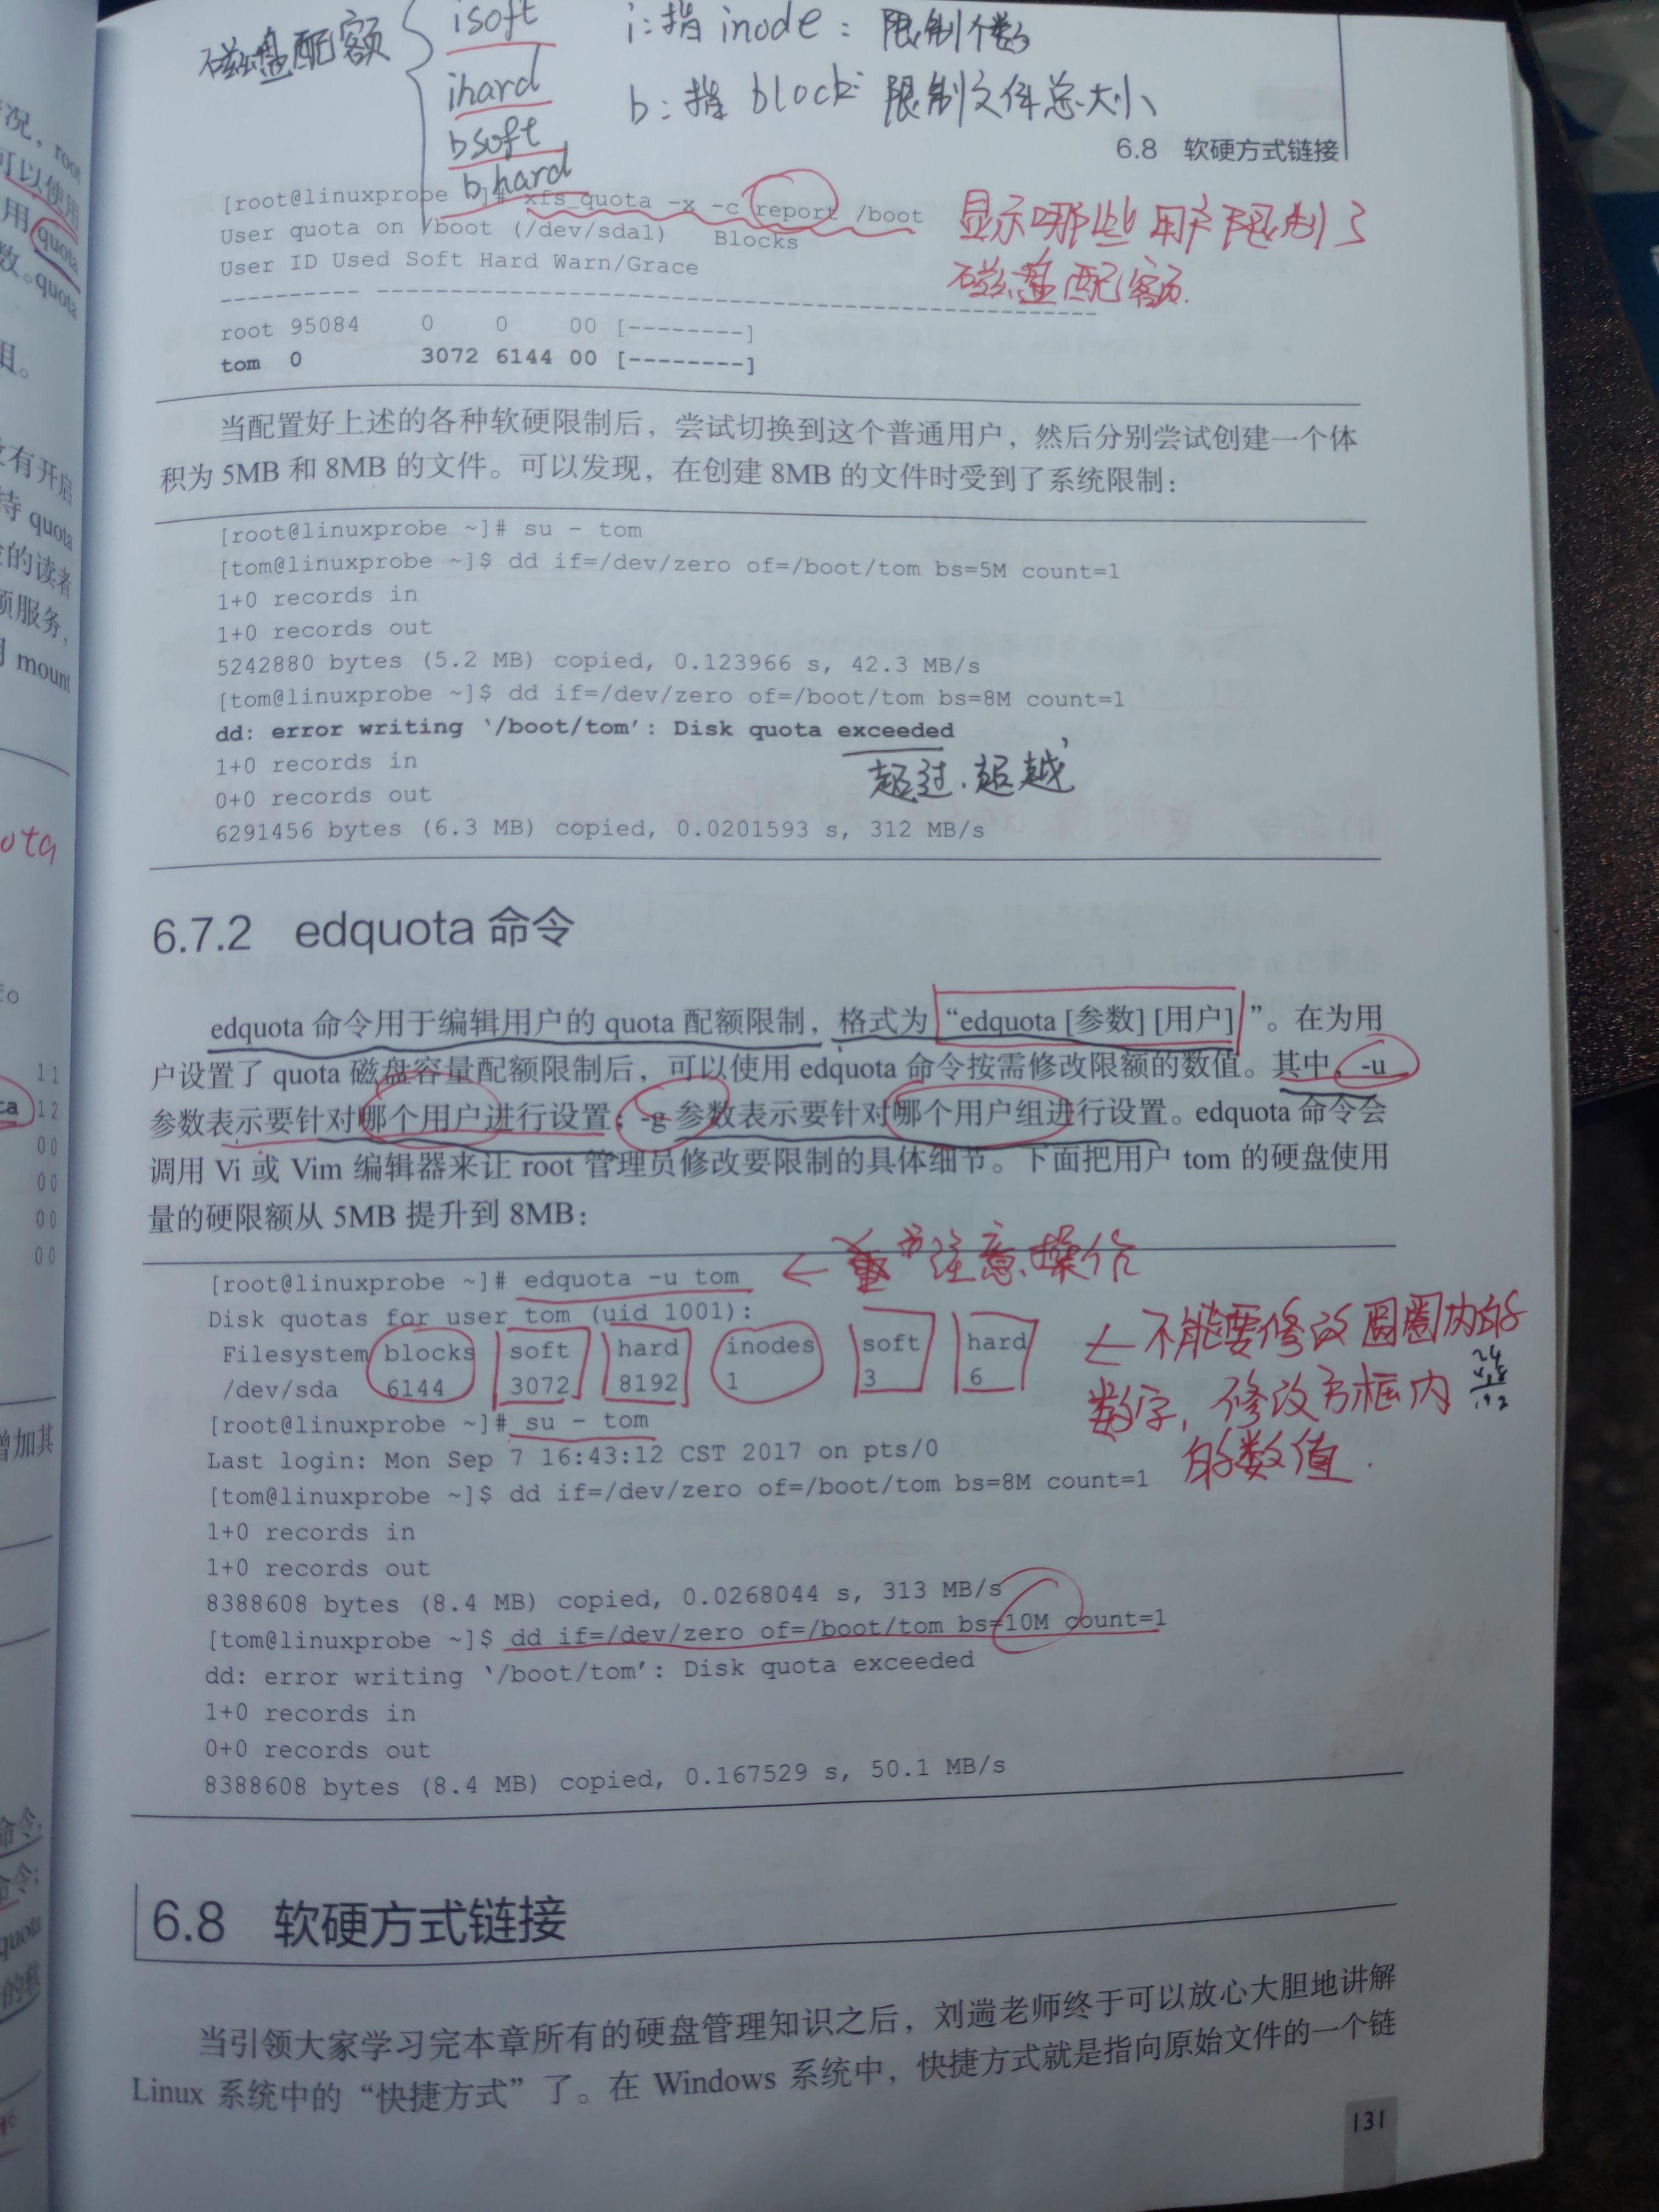 磁盘配额 { isoft
ihard
bsoft
bhard
i:指 inode: 限制个数
b:指 block: 限制文件总大小
6.8 软硬方式链接
[root@linuxprobe ~]# xfs_quota -x -c report /boot
显示哪些用户限制了
磁盘配额.
User quota on /boot (/dev/sda1) Blocks
User ID Used Soft Hard Warn/Grace
---------- --------------------------------------------------
root 95084 0 0 00 [--------]
tom 0 3072 6144 00 [--------]
当配置好上述的各种软硬限制后，尝试切换到这个普通用户，然后分别尝试创建一个体
积为 5MB 和 8MB 的文件。可以发现，在创建 8MB 的文件时受到了系统限制：
[root@linuxprobe ~]# su - tom
[tom@linuxprobe ~]$ dd if=/dev/zero of=/boot/tom bs=5M count=1
1+0 records in
1+0 records out
5242880 bytes (5.2 MB) copied, 0.123966 s, 42.3 MB/s
[tom@linuxprobe ~]$ dd if=/dev/zero of=/boot/tom bs=8M count=1
dd: error writing ‘/boot/tom’: Disk quota exceeded
超过.超越
1+0 records in
0+0 records out
6291456 bytes (6.3 MB) copied, 0.0201593 s, 312 MB/s
6.7.2 edquota 命令
edquota 命令用于编辑用户的 quota 配额限制，格式为“edquota [参数] [用户]”。在为用
户设置了 quota 磁盘容量配额限制后，可以使用 edquota 命令按需修改限额的数值。其中，-u
参数表示要针对哪个用户进行设置；-g 参数表示要针对哪个用户组进行设置。edquota 命令会
调用 Vi 或 Vim 编辑器来让 root 管理员修改要限制的具体细节。下面把用户 tom 的硬盘使用
量的硬限额从 5MB 提升到 8MB：
[root@linuxprobe ~]# edquota -u tom
← 注意操作
Disk quotas for user tom (uid 1001):
Filesystem blocks soft hard inodes soft hard
/dev/sda 6144 3072 8192 1 3 6
← 不能要修改圆圈内的
数字, 修改方框内
的数值.
[root@linuxprobe ~]# su - tom
Last login: Mon Sep 7 16:43:12 CST 2017 on pts/0
[tom@linuxprobe ~]$ dd if=/dev/zero of=/boot/tom bs=8M count=1
1+0 records in
1+0 records out
8388608 bytes (8.4 MB) copied, 0.0268044 s, 313 MB/s
[tom@linuxprobe ~]$ dd if=/dev/zero of=/boot/tom bs=10M count=1
dd: error writing ‘/boot/tom’: Disk quota exceeded
1+0 records in
0+0 records out
8388608 bytes (8.4 MB) copied, 0.167529 s, 50.1 MB/s
6.8 软硬方式链接
当引领大家学习完本章所有的硬盘管理知识之后，刘遄老师终于可以放心大胆地讲解
Linux 系统中的“快捷方式”了。在 Windows 系统中，快捷方式就是指向原始文件的一个链
131